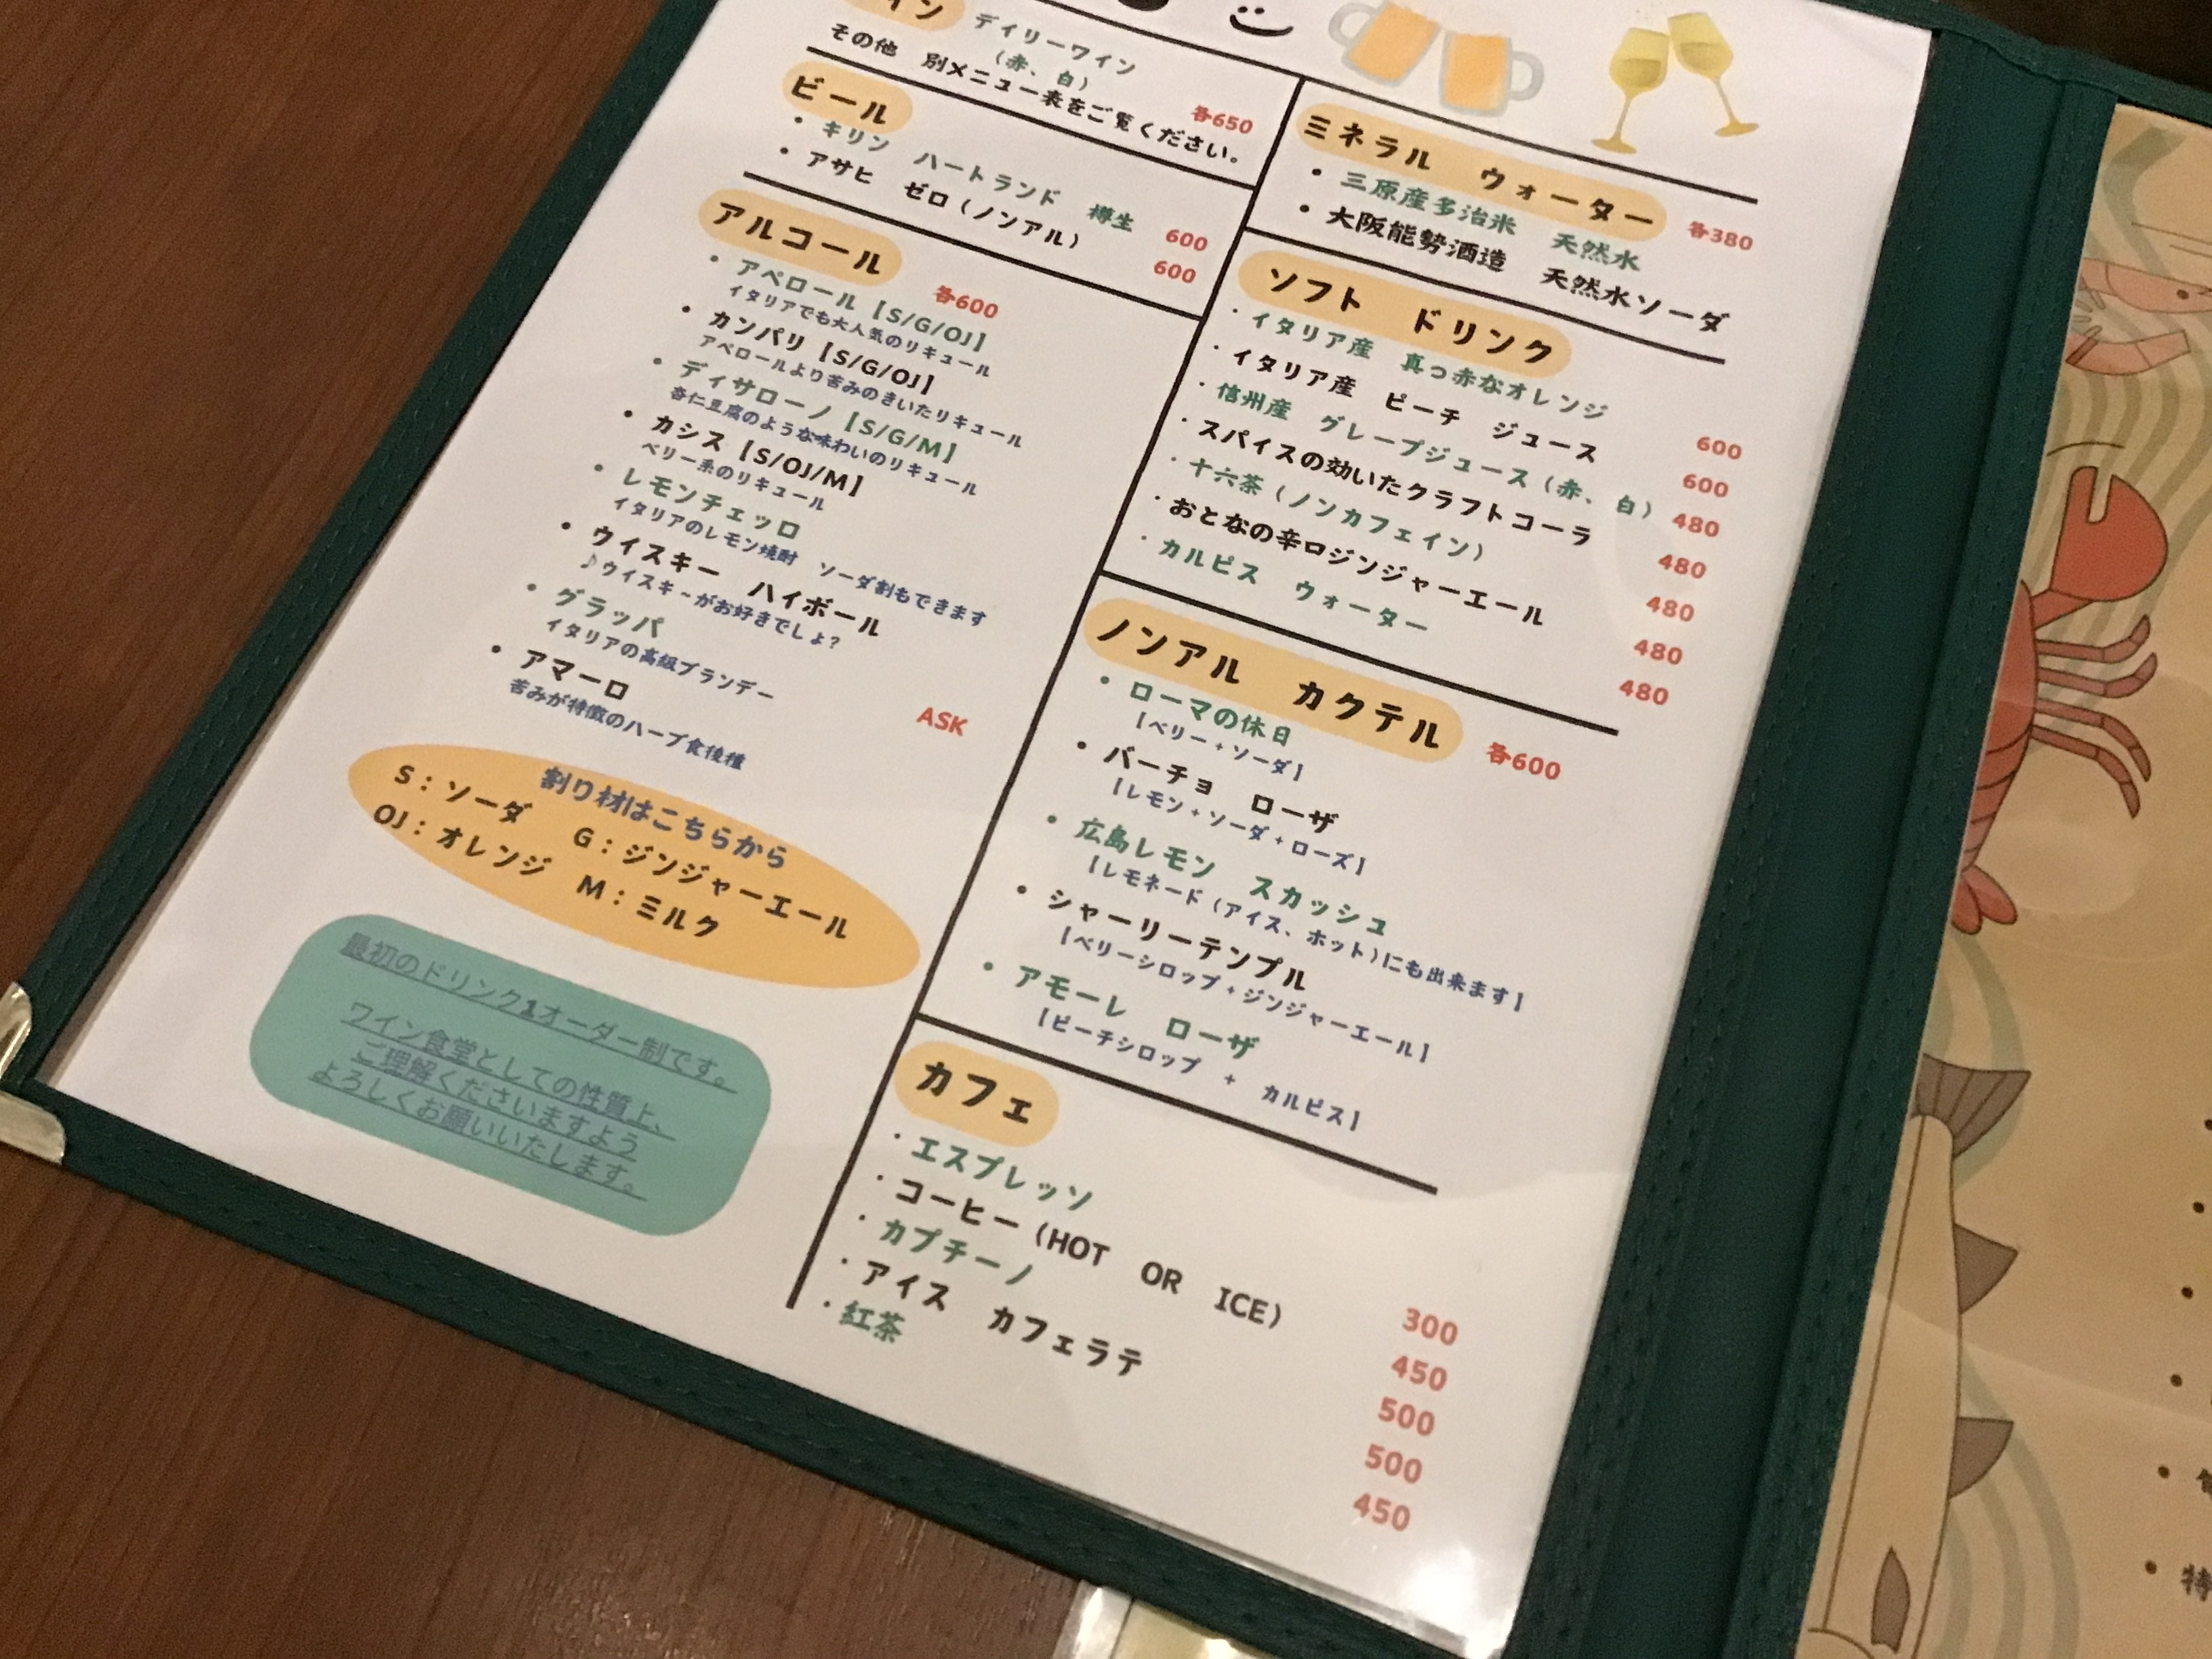 イン
デイリーワイン
(赤、白)
各650
その他 別メニュー表をご覧ください。
ビール
・キリン ハートランド 樽生 600
・アサヒ ゼロ(ノンアル) 600
アルコール 各600
・アペロール【S/G/OJ】
イタリアでも大人気のリキュール
・カンパリ【S/G/OJ】
アペロールより苦みのきいたリキュール
・ディサローノ【S/G/M】
杏仁豆腐のような味わいのリキュール
・カシス【S/OJ/M】
ベリー系のリキュール
・レモンチェッロ
イタリアのレモン焼酎 ソーダ割もできます
・ウイスキー ハイボール
♪ウイスキ~がお好きでしょ?
・グラッパ
イタリアの高級ブランデー
ASK
・アマーロ
苦みが特徴のハーブ食後種
割り材はこちらから
S:ソーダ G:ジンジャーエール
OJ:オレンジ M:ミルク
最初のドリンク1オーダー制です。
ワイン食堂としての性質上、
ご理解くださいますよう
よろしくお願いいたします。
ミネラル ウォーター 各380
・三原産多治米 天然水
・大阪能勢酒造 天然水ソーダ
ソフト ドリンク
・イタリア産 真っ赤なオレンジ 600
・イタリア産 ピーチ ジュース 600
・信州産 グレープジュース(赤、白) 480
・スパイスの効いたクラフトコーラ 480
・十六茶(ノンカフェイン) 480
・おとなの辛口ジンジャーエール 480
・カルピス ウォーター 480
ノンアル カクテル 各600
・ローマの休日
【ベリー+ソーダ】
・バーチョ ローザ
【レモン+ソーダ+ローズ】
・広島レモン スカッシュ
【レモネード(アイス、ホット)にも出来ます】
・シャーリーテンプル
【ベリーシロップ+ジンジャーエール】
・アモーレ ローザ
【ピーチシロップ + カルピス】
カフェ
・エスプレッソ 300
・コーヒー(HOT OR ICE) 450
・カプチーノ 500
・アイス カフェラテ 500
・紅茶 450